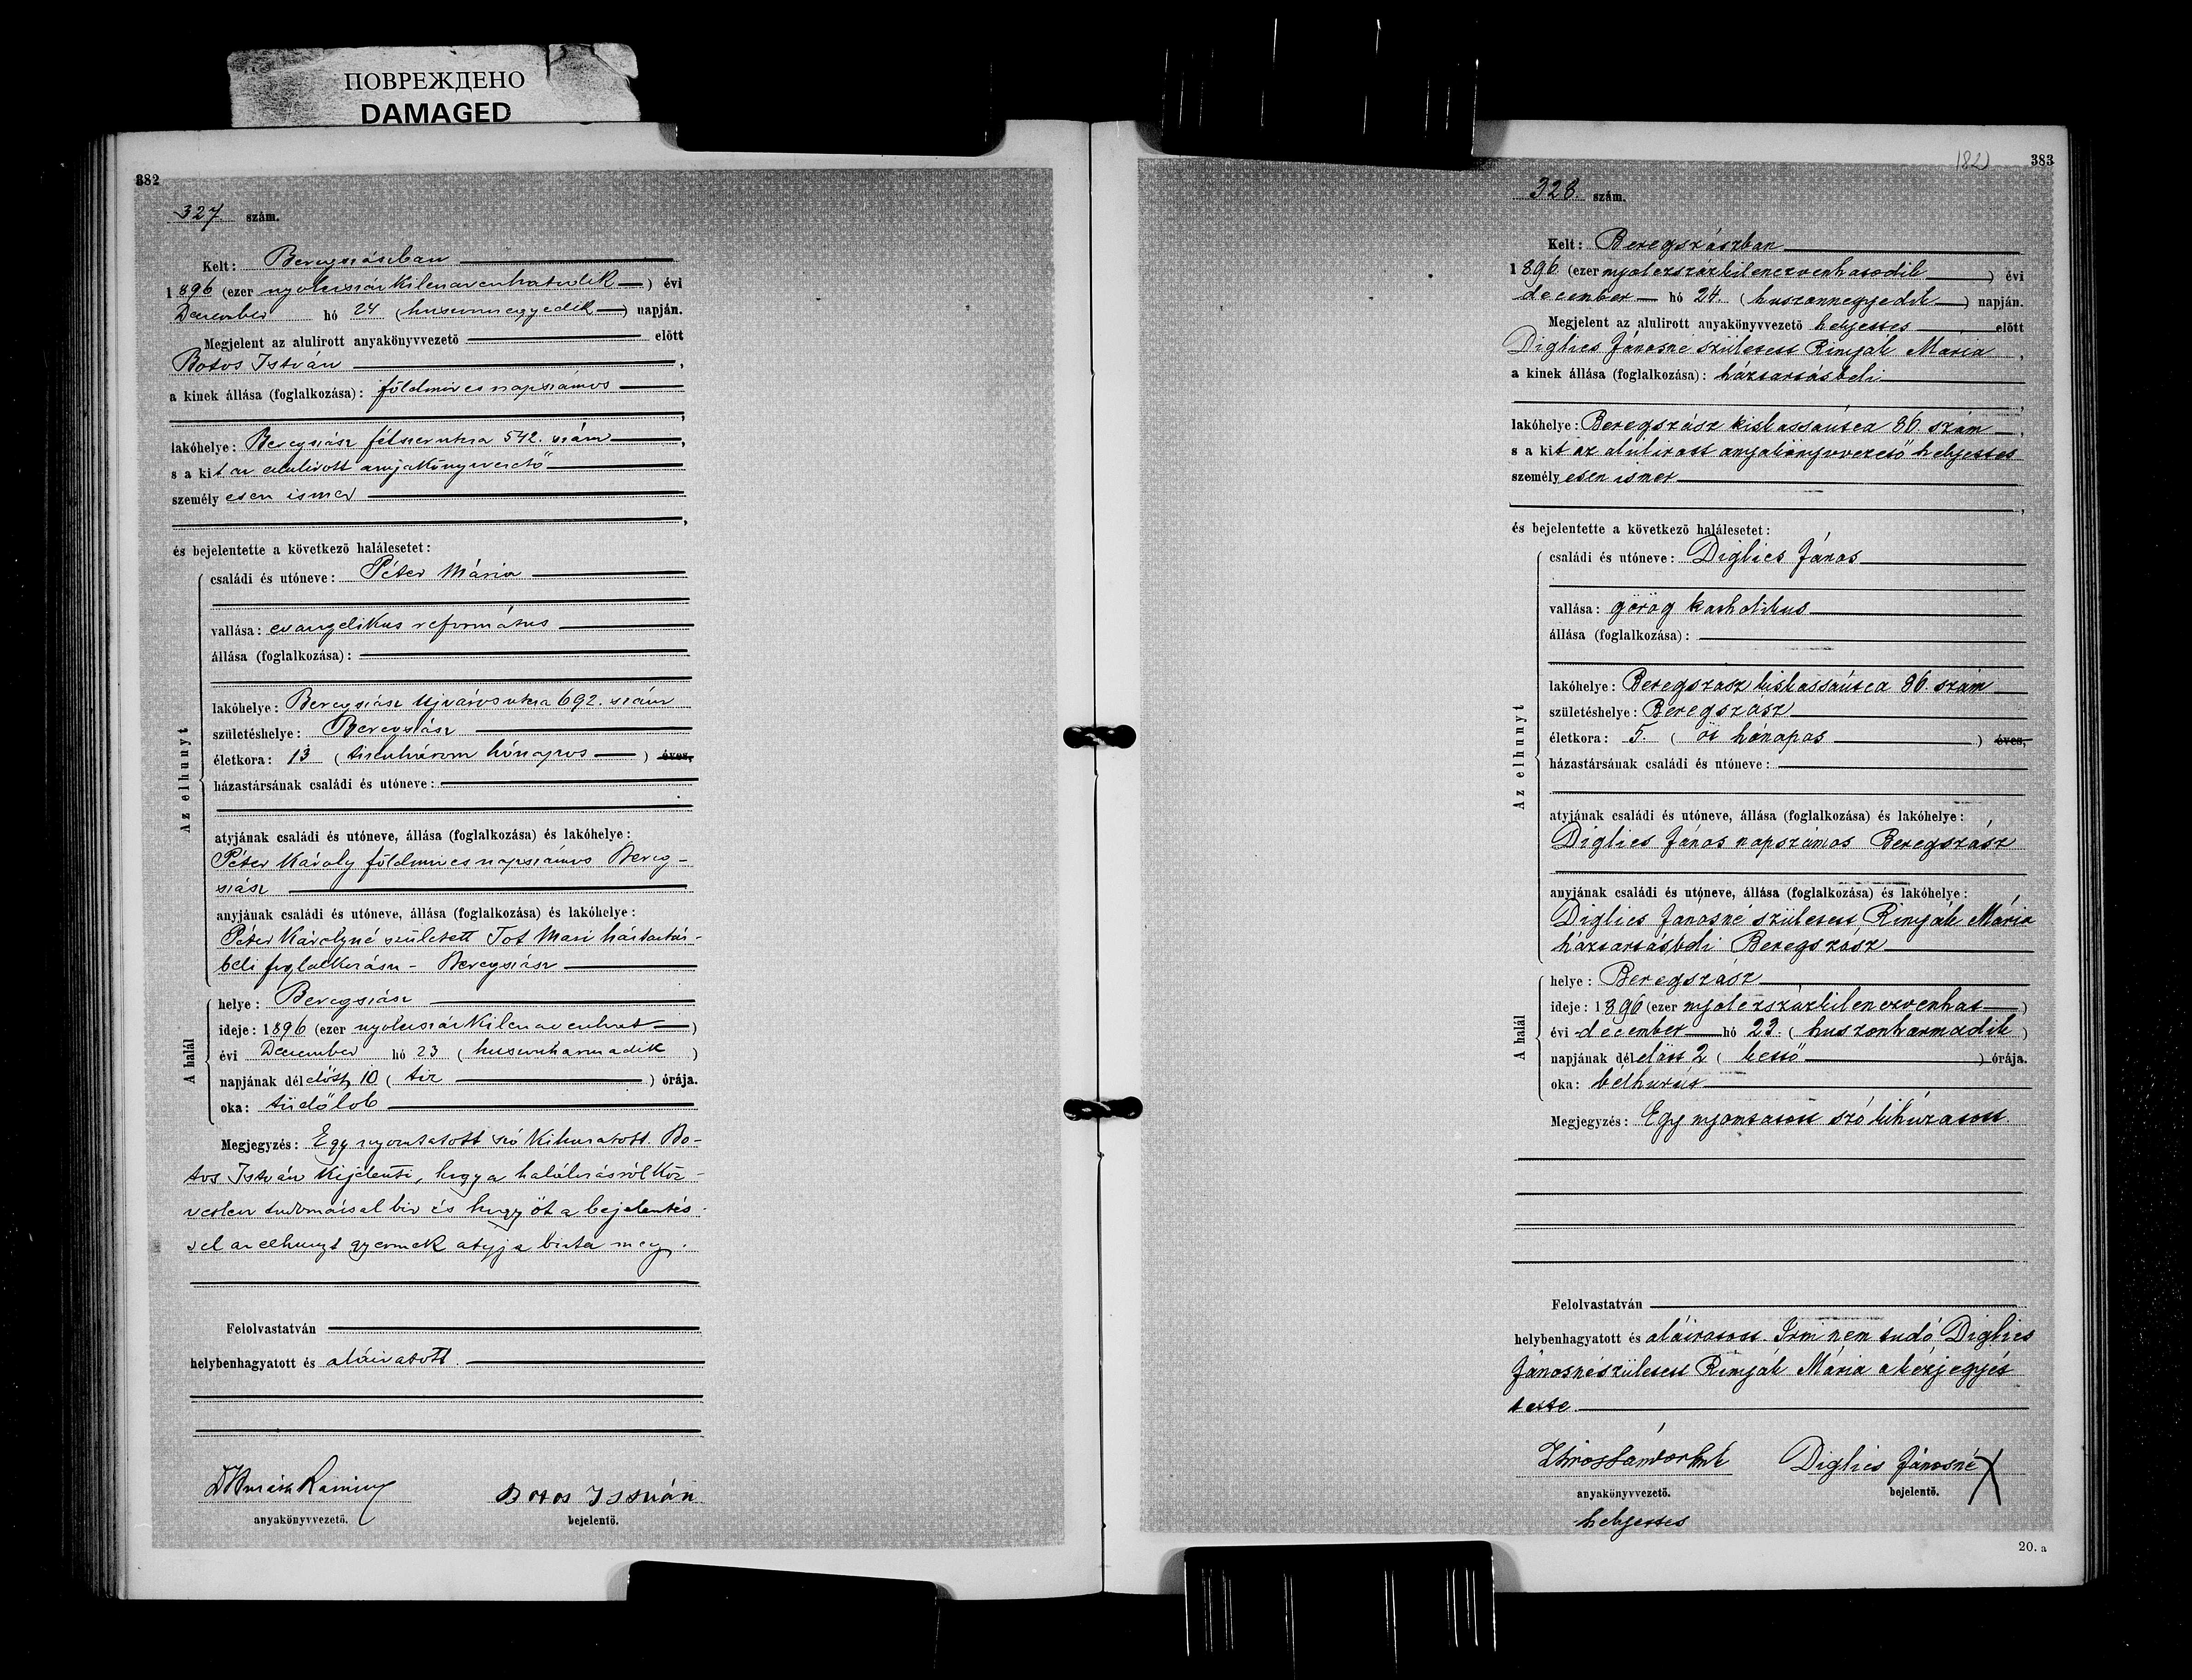 ПОВРЕЖДЕНО
DAMAGED
382
327 szám.
Kelt: Beregszászban
1896 (ezer nyolczszázkilenczvenhatodik) évi
December hó 24 (huszonnegyedik) napján.
Megjelent az alulirott anyakönyvvezető előtt
Botos István,
a kinek állása (foglalkozása): földmives napszámos
,
lakóhelye: Beregszász félszer utcza 542. szám,
s a kit az alulirott anyakönyvvezető
személyesen ismer
,
és bejelentette a következő halálesetet:
Az elhunyt
családi és utóneve: Péter Mária
vallása: evangelikus református
állása (foglalkozása):
lakóhelye: Beregszász Ujváros utcza 692. szám
születéshelye: Beregszász
életkora: 13 (tizenhárom hónapos) éves,
házastársának családi és utóneve:
atyjának családi és utóneve, állása (foglalkozása) és lakóhelye:
Péter Károly földmives napszámos Bereg-
szász
anyjának családi és utóneve, állása (foglalkozása) és lakóhelye:
Péter Károlyné született Tot Mari háztartás-
beli foglalkozásu - Beregszász
A halál
helye: Beregszász
ideje: 1896 (ezer nyolczszázkilenczvenhat)
évi December hó 23 (huszonharmadik)
napjának délelőtt 10 (tiz) órája.
oka: tüdőlob
Megjegyzés: Egy nyomtatott szó kihuzatott. Bo-
tos István kijelenti, hogy a halálozásról köz-
vetlen tudomással bir és hogy őt a bejelentés-
sel az elhunyt gyermek atyja bizta meg.
Felolvastatván
helybenhagyatott és aláiratott.
Botos István
anyakönyvvezető.
bejelentő.
182
383
328. szám.
Kelt: Beregszászban
1896 (ezer nyolczszázkilenczvenhatodik) évi
december hó 24. (huszonnegyedik) napján.
Megjelent az alulirott anyakönyvvezető helyettes előtt
Diglics Jánosné született Rimják Mária,
a kinek állása (foglalkozása): háztartásbeli
,
lakóhelye: Beregszász kiskassautca 86. szám,
s a kit az alulirott anyakönyvvezető helyettes
személyesen ismer
,
és bejelentette a következő halálesetet:
Az elhunyt
családi és utóneve: Diglics János
vallása: görög katholikus
állása (foglalkozása):
lakóhelye: Beregszász kiskassautca 86. szám
születéshelye: Beregszász
életkora: 5. (öt hónapos) éves,
házastársának családi és utóneve:
atyjának családi és utóneve, állása (foglalkozása) és lakóhelye:
Diglics János napszámos Beregszász
anyjának családi és utóneve, állása (foglalkozása) és lakóhelye:
Diglics Jánosné született Rimják Mária
háztartásbeli Beregszász
A halál
helye: Beregszász
ideje: 1896 (ezer nyolczszázkilenczvenhat)
évi december hó 23. (huszonharmadik)
napjának délelőtt 2 (kettő) órája.
oka: bélhurút
Megjegyzés: Egy nyomtatott szó kihúzatott.
Felolvastatván
helybenhagyatott és aláiratott. Irni nem tudó Diglics
Jánosné született Rimják Mária a kézjegyét
tette.
Diglics Jánosné X
anyakönyvvezető.
bejelentő.
helyettes
20. a